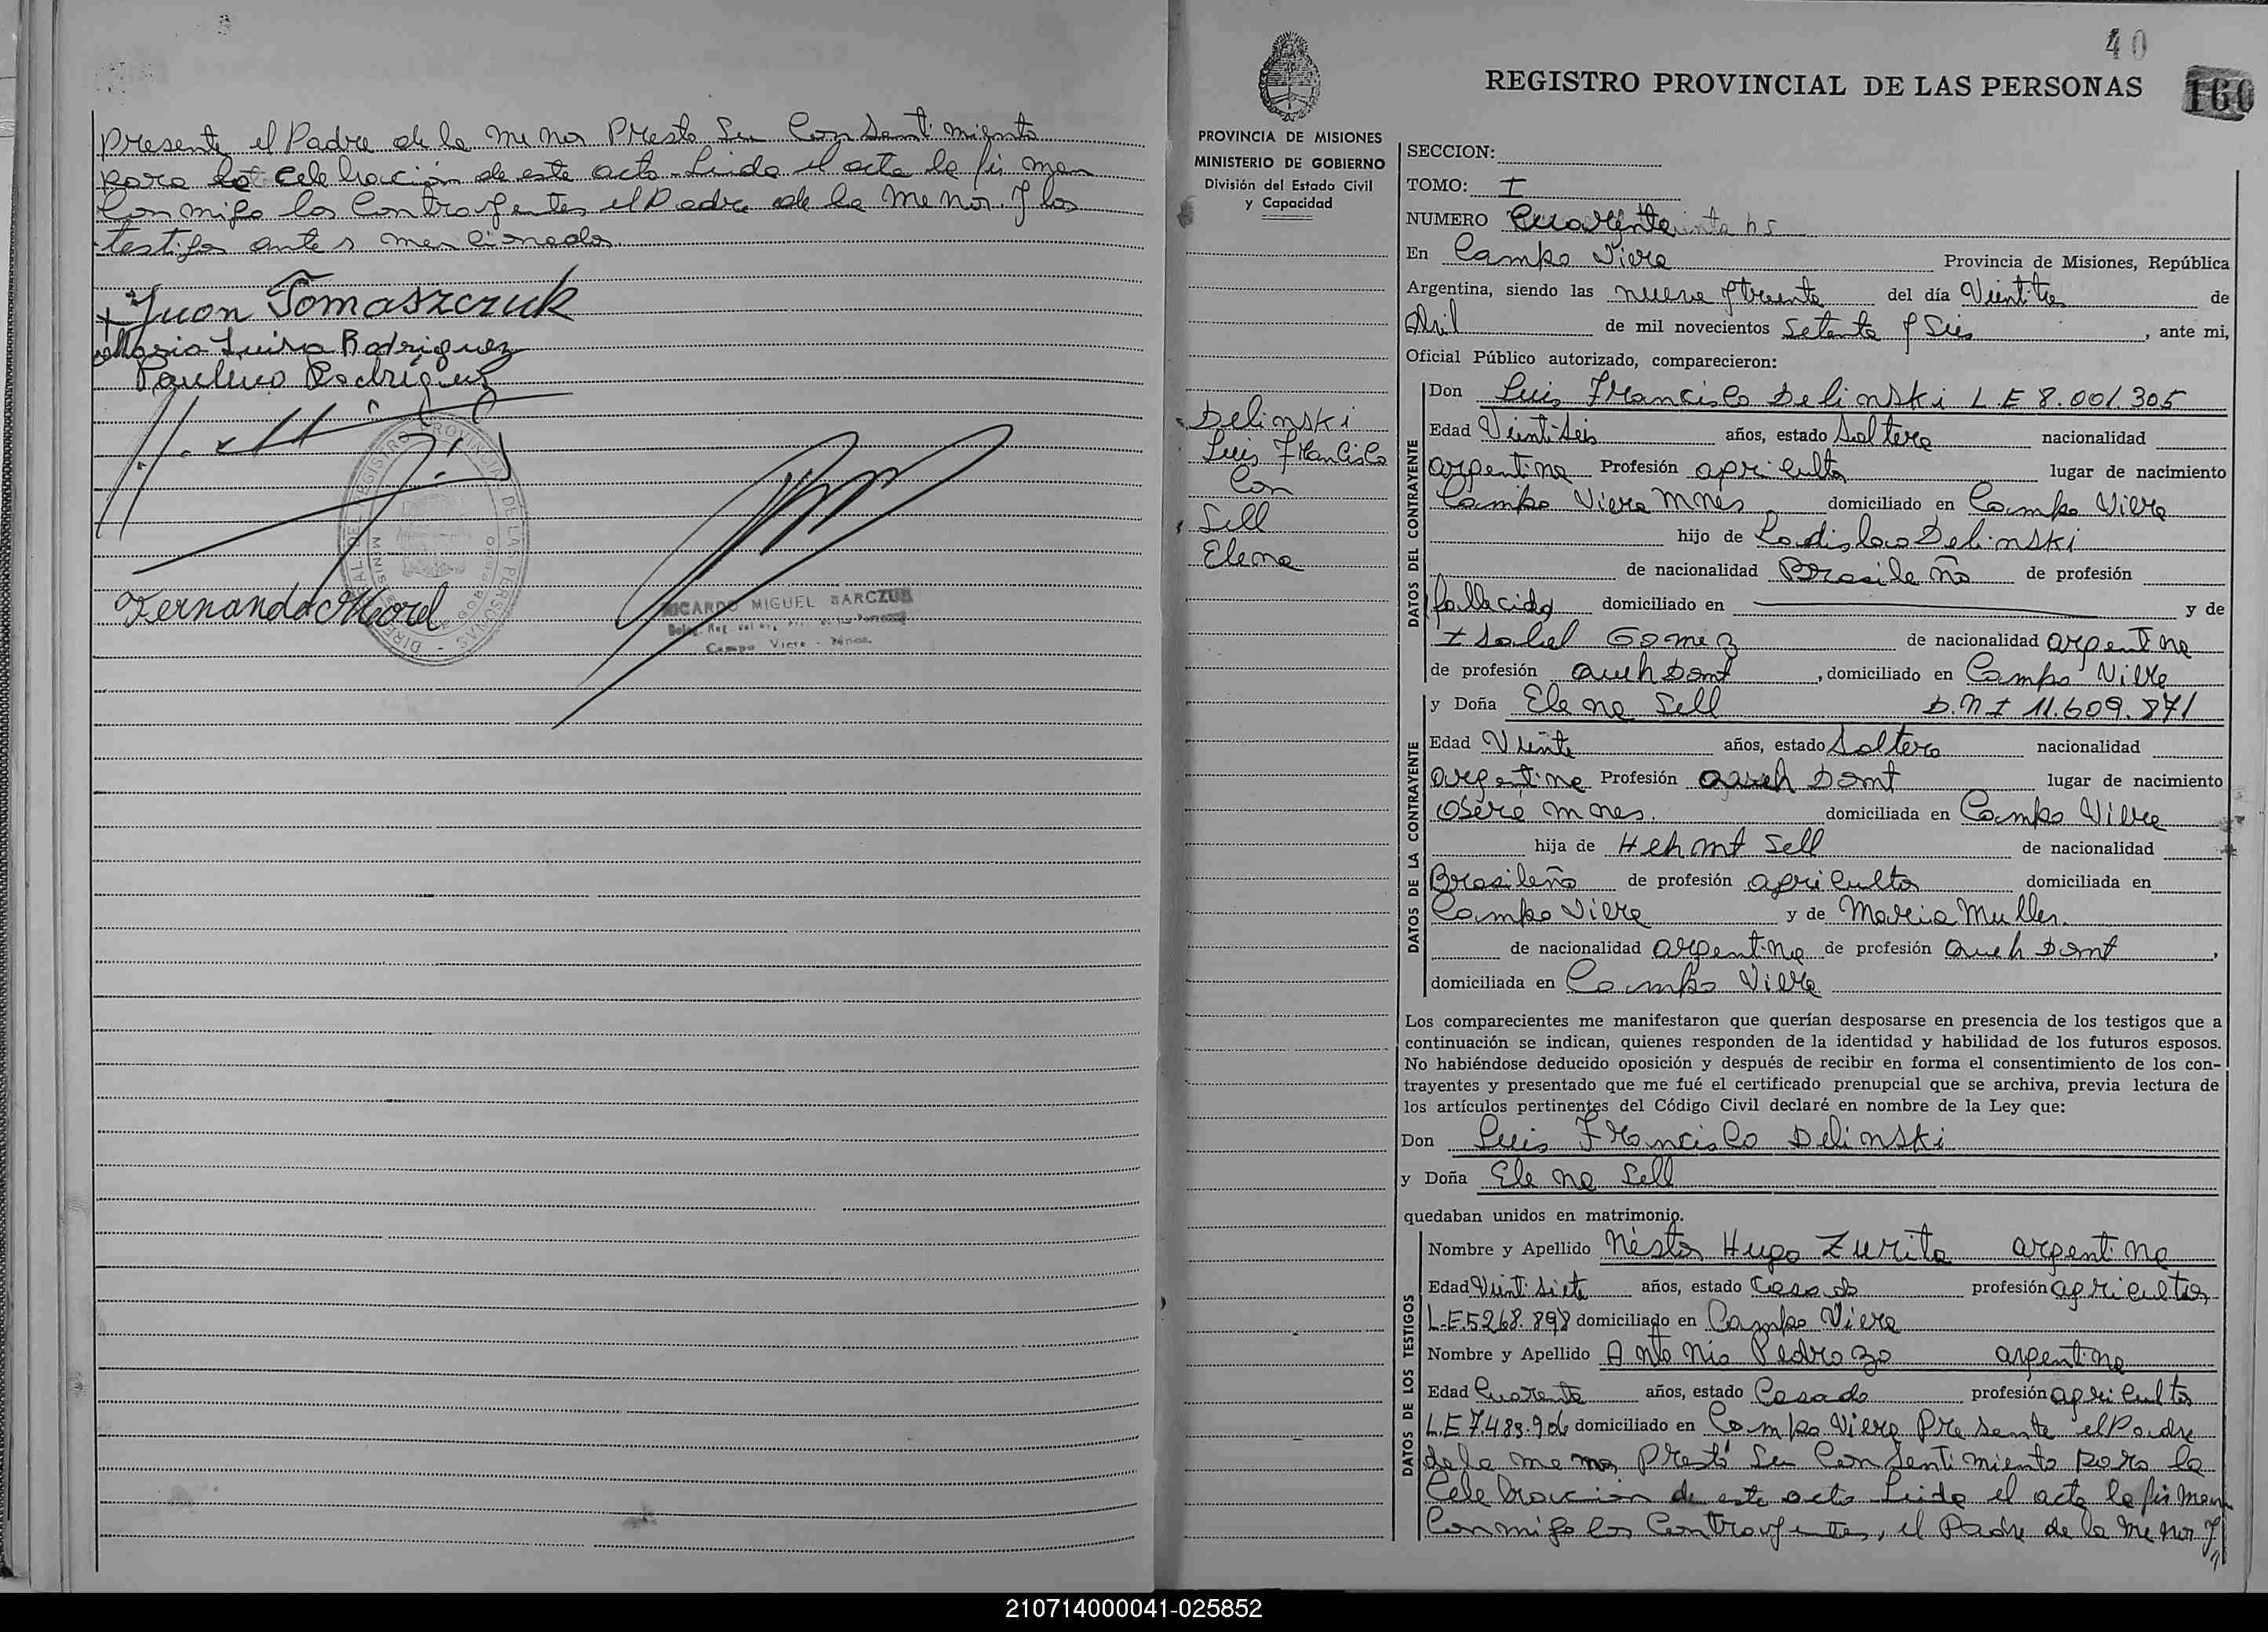 presente el Padre de la menor Presto su Consentimiento
para la Celebración de este acto - Leida el acta la firman
Conmigo los Contrayentes el Padre de la menor y los
testigos antes mencionados
Juan Tomaszczuk
Maria Luisa Rodriguez
Paulino Rodriguez
Fernando Morel
RICARDO MIGUEL BARCZUK
Campo Viera - Mnes.
40
REGISTRO PROVINCIAL DE LAS PERSONAS
160
PROVINCIA DE MISIONES
MINISTERIO DE GOBIERNO
División del Estado Civil
y Capacidad
Delinski
Luis Francisco
Con
Sell
Elena
SECCION:
TOMO: I
NUMERO Cuarenta
En Campo Viera Provincia de Misiones, República
Argentina, siendo las nueve y treinta del día Veintitres de
Abril de mil novecientos Setenta y Seis, ante mi,
Oficial Público autorizado, comparecieron:
DATOS DEL CONTRAYENTE
Don Luis Francisco Delinski L.E 8.001.305
Edad Veintiseis años, estado Soltero nacionalidad
argentina Profesión agriculto lugar de nacimiento
Campo Viera Mnes domiciliado en Campo Viera
hijo de Ladislao Delinski
de nacionalidad Brasileño de profesión
fallecido domiciliado en y de
Isabel Gomez de nacionalidad argentina
de profesión queh Domt, domiciliado en Campo Viera
DATOS DE LA CONTRAYENTE
y Doña Elena Sell D.N I 11.609.871
Edad Veinte años, estado Soltero nacionalidad
argentina Profesión queh Domt lugar de nacimiento
Oberá Mnes. domiciliada en Campo Viera
hija de Helmut Sell de nacionalidad
Brasileño de profesión agriculto domiciliada en
Campo Viera y de Maria Muller.
de nacionalidad argentina de profesión queh Domt,
domiciliada en Campo Viera
Los comparecientes me manifestaron que querían desposarse en presencia de los testigos que a
continuación se indican, quienes responden de la identidad y habilidad de los futuros esposos.
No habiéndose deducido oposición y después de recibir en forma el consentimiento de los con-
trayentes y presentado que me fué el certificado prenupcial que se archiva, previa lectura de
los artículos pertinentes del Código Civil declaré en nombre de la Ley que:
Don Luis Francisco Delinski
y Doña Elena Sell
quedaban unidos en matrimonio.
DATOS DE LOS TESTIGOS
Nombre y Apellido Néstor Hugo Zurita argentina
Edad Veintisiete años, estado Casado profesión agricultor
L.E.5268.898 domiciliado en Campo Viera
Nombre y Apellido Antonio Pedrozo argentino
Edad Cuarenta años, estado Casado profesión agricultor
L.E 7.483.906 domiciliado en Campo Viera Presente el Padre
de la menor Prestó su Consentimiento para la
Celebracion de este acto Leida el acta la firman
Conmigo los Contrayentes, el Padre de la menor y
210714000041-025852